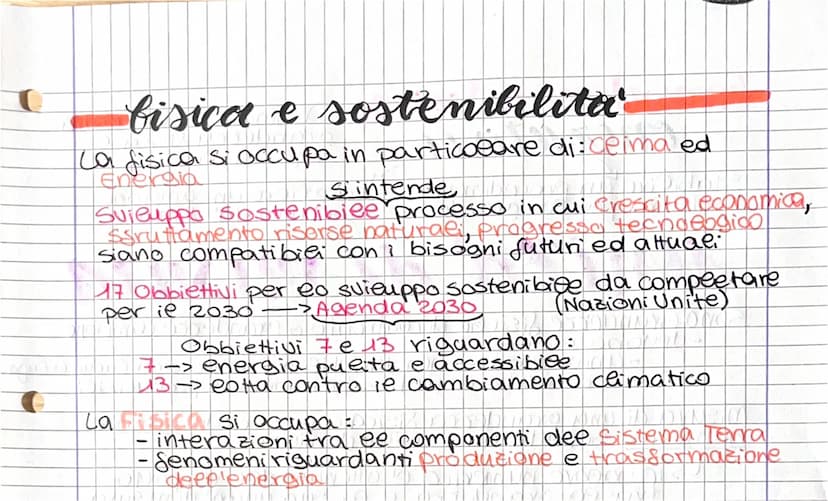 fisica e sostenibilità
La fisica si occupa in particolare di: clima ed
Energia
si intende
Sviluppo sostenibile processo in cui crescita economica,
sfruttamento risorse naturali, progresso tecnologico
siano compatibili con i bisogni futuri ed attuali
17 Obbiettivi per lo sviluppo sostenibile da completare
per il 2030 —> Agenda 2030 (Nazioni Unite)
Obbiettivi 7 e 13 riguardano:
7 —> energia pulita e accessibile
13 —> lotta contro il cambiamento climatico
La Fisica si occupa:
- interazioni tra le componenti del Sistema Terra
- fenomeni riguardanti produzione e trasformazione
dell'energia